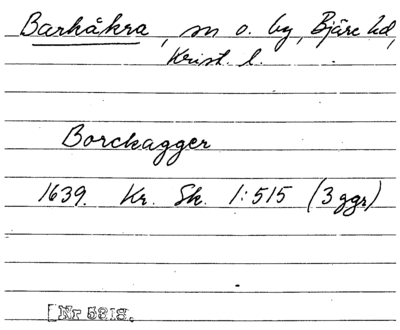 Barkåkra, sn o. by, Bjäre hd,
Krist. l.
Borckagger
1639. Kr. Sk. 1:515 (3 ggr)
[Nr 5318.